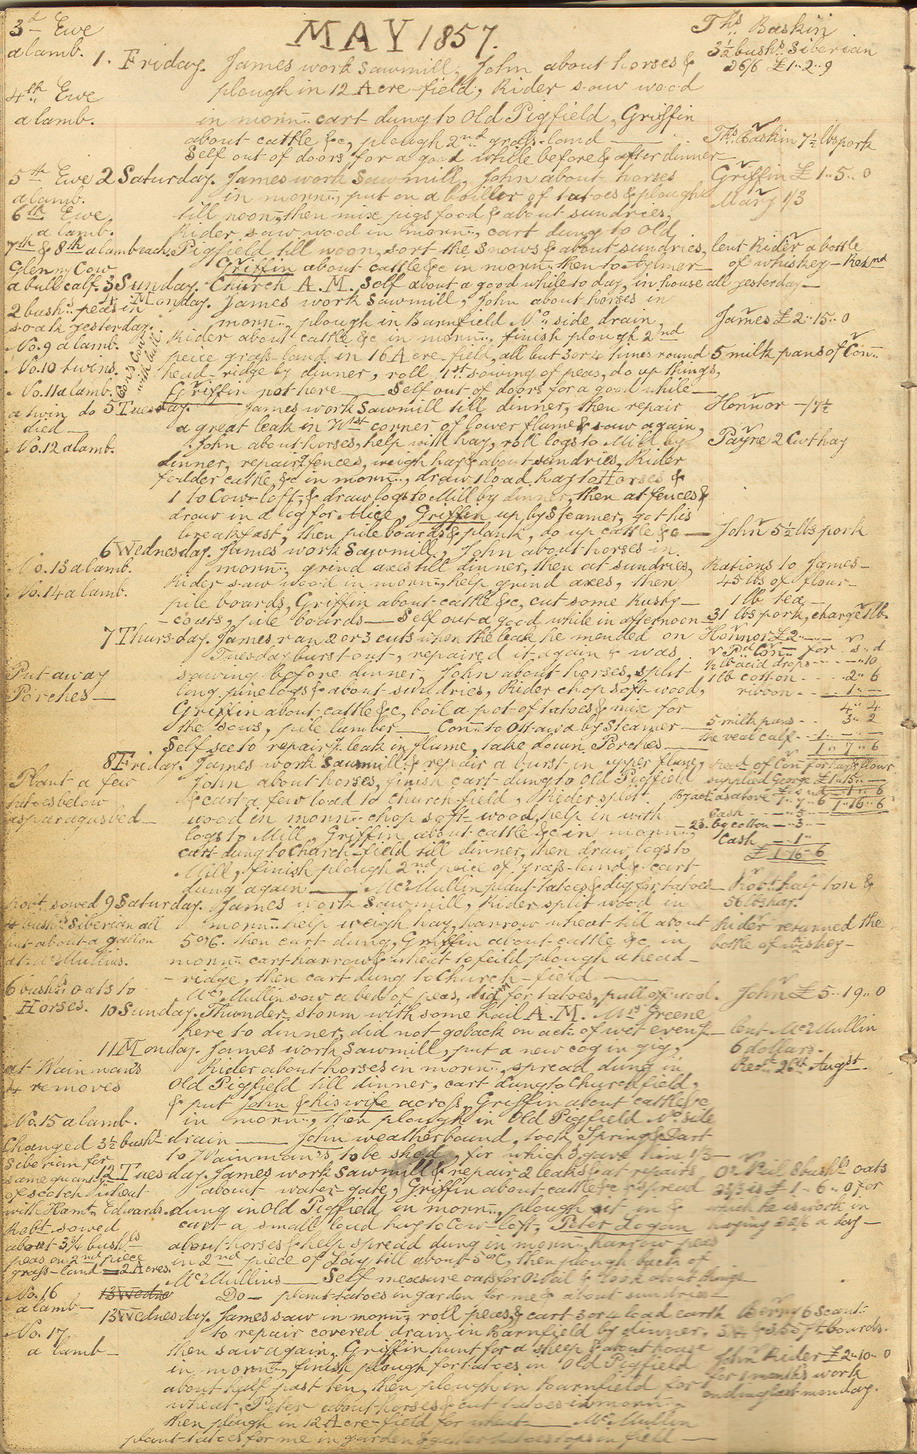 MAY 1857.
3rd Ewe
a lamb.
Ths Baskin
3½ bushs Siberian
26/6 £1..2..9
1. Friday. James work Sawmill, John about horses &
plough in 12 Acre-field, Rider saw wood
4th Ewe
a lamb.
in mornn. cart dung to Old Pigfield, Griffin
about cattle &c, plough 2nd grass-land
Self out of doors for a good while before & after dinner
Ths Baskin 7½ lbs pork
5th Ewe
a lamb.
2 Saturday. James work Sawmill, John about horses
Griffin £1..5..0
in mornn, put on a boiler of tatoes & plough
Mary 1/3
6th Ewe
a lamb.
till noon, then mix pigs food & about sundries,
Rider saw wood in mornn, cart dung to Old
7th & 8th a lamb each
Pigfield till noon, sort the Snows & about sundries,
lent Rider a bottle
of whiskey - Retnd
Glenny Cow
a bull calf.
Griffin about cattle &c in mornn, then to Aylmer
3 Sunday. Church A.M. Self about a good while to day, in house all yesterday
4 Monday. James work Sawmill, John about horses in
2 bushs peas in
soak yesterday.
mornn, plough in Barnfield No side drain
James £2..15..0
No. 9 a lamb.
Rider about cattle &c in mornn, finish plough 2nd
No. 10 twins.
peice grass-land in 16 Acre-field, all but 3 or 4 times round
5 milk pans of Conn.
head-ridge by dinner, roll 1st sowing of peas, do up things,
No. 11 a lamb.
Griffin not here — Self out of doors for a good while
a twin do
died
5 Tuesday. James work Sawmill till dinner, then repair
Honnor - 1/7½
a great leak in Wst corner of lower flume & saw again,
No. 12 a lamb.
John about horses, help with hay, roll logs to Mill by
Payne 2 Cwt hay
dinner, repairg fences, weigh hay & about sundries, Rider
fodder cattle, &c in mornn, draw 1 load hay to Horses &
1 to Cow-loft, & draw logs to Mill by dinner, then at fences &
draw in a log for Alice, Griffin up by Steamer, got his
breakfast, then pile boards & plank, do up cattle &c
John 5½ lbs pork
6 Wednesday. James work Sawmill, John about horses in
No. 13 a lamb.
mornn, grind axes till dinner, then at sundries,
Rations to James
45 lbs of flour
1 lb tea
31 lbs pork, charge 1 lb.
No. 14 a lamb.
Rider saw wood in mornn, help grind axes, then
pile boards, Griffin about cattle &c, cut some Rusty-
-couts, pile boards — Self out a good while in afternoon
7 Thursday. James ran 2 or 3 cuts when the leak he mended on
Honnor £2
Tuesday burst out, repaired it again & was
Pd Conn for s d
½ lb acid drops 10
1 lb cotton 2 6
ribbon 1
4 4
Put away
Porches
sawing before dinner, John about horses, split
long pine logs & about sundries, Rider chop soft-wood,
Griffin about cattle &c, boil a pot of tatoes & mix for
the Sows, pile lumber — Conn to Ottawa by Steamer
5 milk pans 3 2
the veal calf 1
1 7 6
Self see to repairg leak in flume, take down Porches
8 Friday. James work Sawmill & repair a burst in upper flume,
Plant a few
tatoes below
asparagus bed
John about horses, finish cart dung to Old Pigfield
& cart a few load to Church-field, Rider split
wood in mornn, chop soft-wood, help in with
logs to Mill, Griffin about cattle &c in mornn,
cart dung to Church-field till dinner, then draw logs to
Mill, finish plough 2nd piece of grass-land & cart
dung again — McMullin plant tatoes & dig for tatoes
Recd of Conn for
supplied George £1..15
By act as above £1..7..6
Cash
by cotton 3
Cash 1
£1..16..6
9 Saturday. James work Sawmill, Rider split wood in
Robt half ton &
56 lbs hay.
Robt sowed
bushs Siberian all
but about a gallon
at McMullins.
mornn, help weigh hay, harrow wheat till about
5 oC. then cart dung, Griffin about cattle &c in
mornn cart harrow & wheat to feild plough a head-
-ridge, then cart dung to Church-field
Rider returned the
bottle of whiskey
McMullin sow a bed of peas, dig for tatoes, pull off wool.
John £5..19..0
6 bushs oats to
Horses.
10 Sunday. Thunder, storm with some hail A.M. Mrs Greene
here to dinner, did not go back on act. of wet eveng
lent McMullin
6 dollars.
Recd 26th Augst
11 Monday. James work Sawmill, put a new cog in gig,
at Wainmans
4 removes
Rider about horses in mornn, spread dung in
Old Pigfield till dinner, cart dung to Churchfield,
& put John & his wife across, Griffin about cattle &c
No. 15 a lamb.
in mornn, then plough in Old Pigfield No side
drain — John weatherbound, took Spring & Dart
to Wainman's to be shod, for which I gave him 1/3
Changed 3½ bushs
Siberian for
same quanty
of scotch wheat
with Hamt. Edwards.
12 Tuesday. James work Sawmill & repair 2 leaks & at repairs
about water-gate, Griffin about cattle &c & spread
dung in Old Pigfield in mornn, plough it in &
cart a small load hay to Cow-loft, Peter Logan
about horses & help spread dung in mornn, harrow peas
in 2nd piece of Lay till about 5 oC, then plough back of
McMullins — Self measure oats for O'Neil & look about things
Do — plant tatoes in garden for me & about sundries
Or Neil 8 bushls oats
@ 3/3 is £1..6..0 for
which he is work in
mowing @ 2/6 a day
Robt sowed
about 3¾ bushls
peas on 2nd piece
grass-land = 2 Acres.
No. 16
a lamb
13 Wedne
13 Wednesday. James saw in mornn, roll peas & cart 3 or 4 load earth
No. 17
a lamb
to repair covered drain in Barnfield by dinner,
then saw again, Griffin hunt for a sheep & about house
in mornn, finish plough for tatoes in Old Pigfield
about half past ten, then plough in Barnfield for
wheat, Peter about horses & cut tatoes in mornn
then plough in 12 Acre-field for wheat — McMullin
plant tatoes for me in garden
John Rider £2..10..0
for 1 month's work
ending last monday.